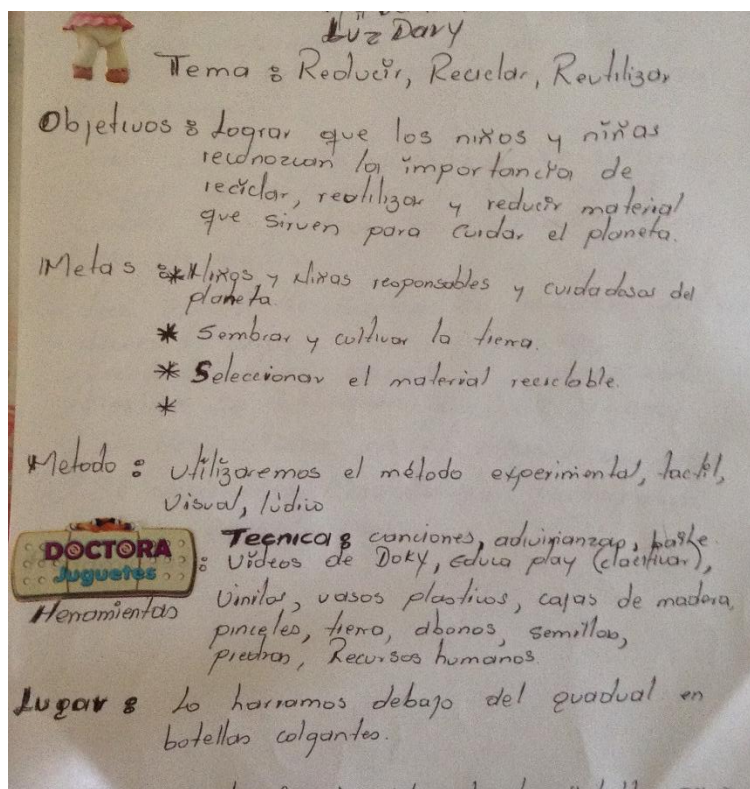 Luz Dary
Tema : Reducir, Reciclar, Reutilizar
Objetivos : Lograr que los niños y niñas
reconozcan la importancia de
reciclar, reutilizar y reducir material
que sirven para cuidar el planeta.
Metas : * Niños y Niñas responsables y cuidadosas del
planeta.
* Sembrar y cultivar la tierra.
* Seleccionar el material reciclable.
*
Metodo : utilizaremos el método experimental, tactil,
Visual, lúdico
Tecnica : canciones, adivinanzas,
DOCTORA
Juguetes
: Videos de Doky, educa play (clacificar),
Herramientas
Vinilos, vasos plasticos, cajas de madera,
pinceles, tierra, abonos, semillas,
piedras, Recursos humanos.
Lugar : Lo harramos debajo del guadual en
botellas colgantes.